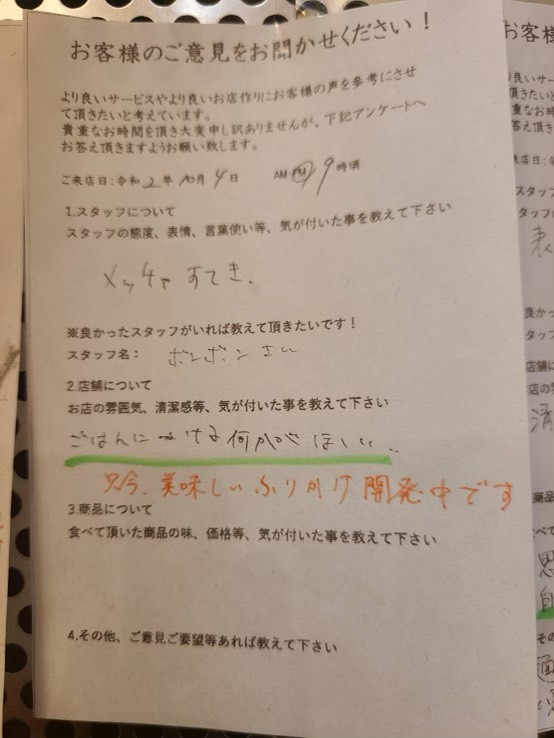 お客様のご意見をお聞かせください！
より良いサービスやより良いお店作りにお客様の声を参考にさせ
て頂きたいと考えています。
貴重なお時間を頂き大変申し訳ありませんが、下記アンケートへ
お答え頂きますようお願い致します。
ご来店日：令和2年10月4日 AM PM 9時頃
1.スタッフについて
スタッフの態度、表情、言葉使い等、気が付いた事を教えて下さい
メッチャすてき.
※良かったスタッフがいれば教えて頂きたいです！
スタッフ名： ボンボンさん
2.店舗について
お店の雰囲気、清潔感等、気が付いた事を教えて下さい
ごはんにかける何かがほしい..
只今、美味しいふりかけ開発中です
3.商品について
食べて頂いた商品の味、価格等、気が付いた事を教えて下さい
4.その他、ご意見ご要望等あれば教えて下さい